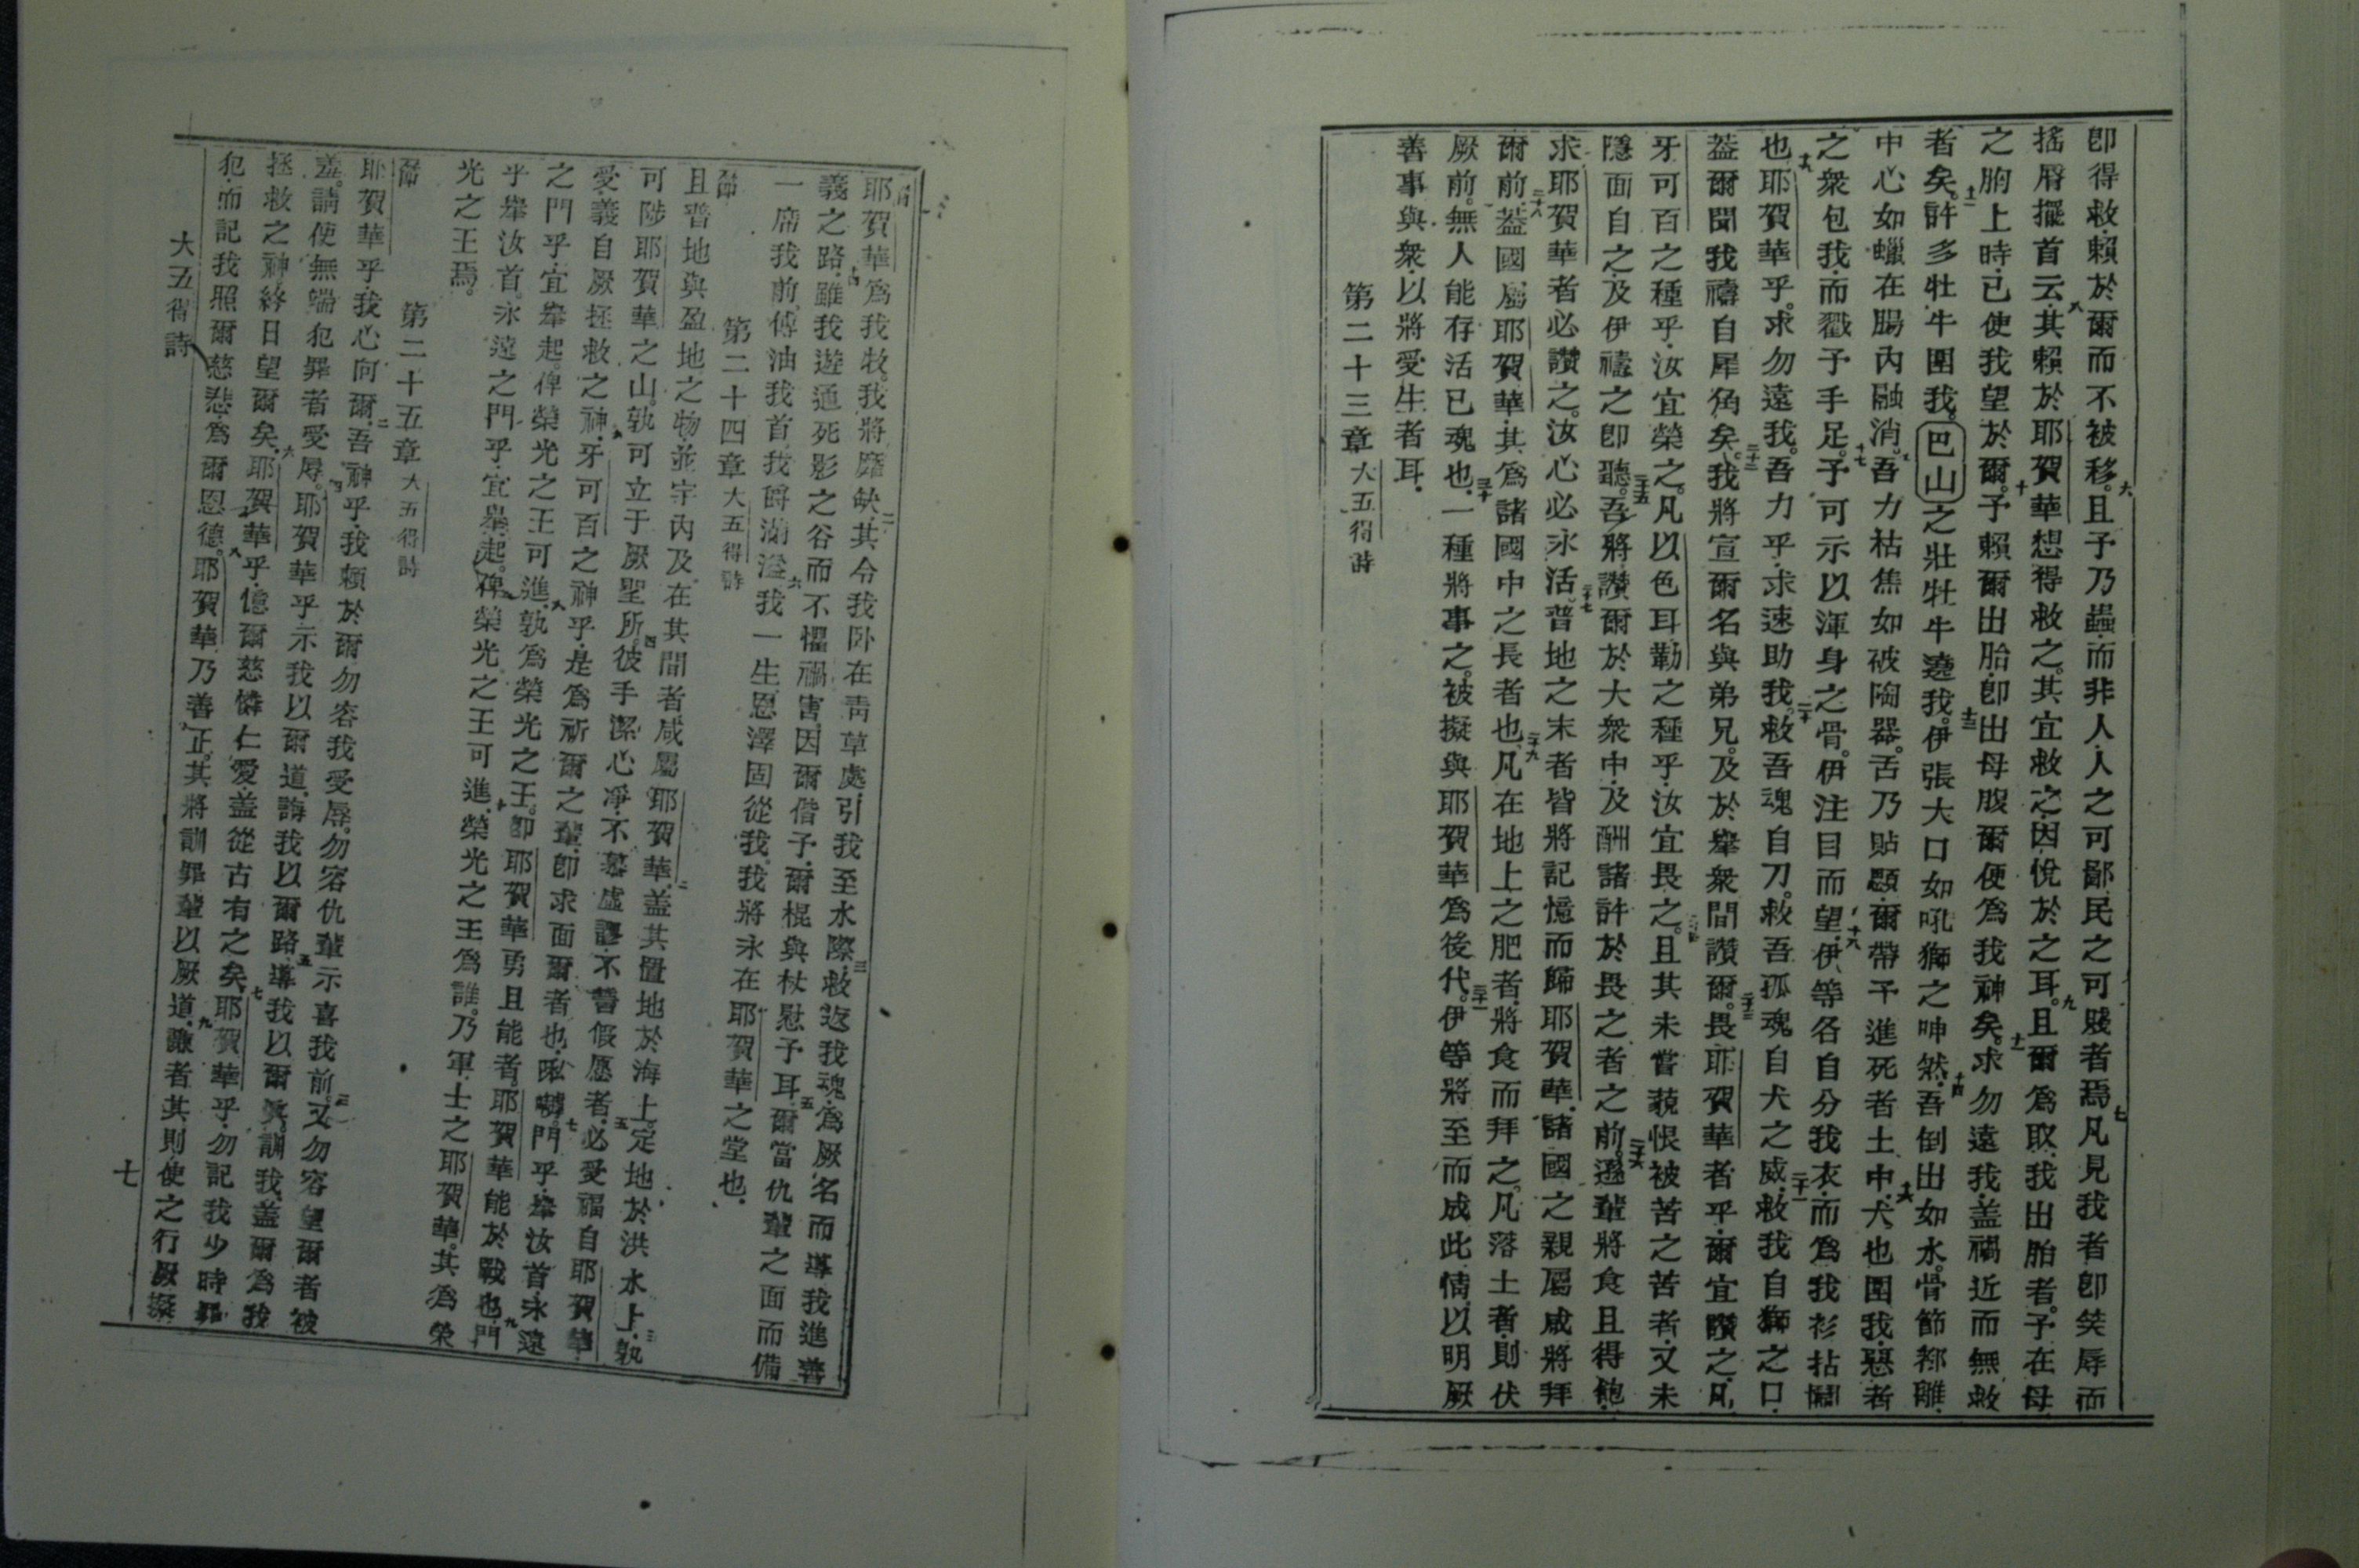 卽得救賴於爾而不被移。六且予乃蟲而非人人之可鄙民之可賤者焉七凡見我者卽笑辱而
搖脣擺首云八其賴於耶賀華想得救之。其宜救之因悅於之耳。九且爾爲取我出胎者。予在母
之胸上時已使我望於爾。十予賴爾出胎卽出母腹爾便爲我神矣。十一求勿遠我蓋禍近而無救
者矣。十二許多牡牛圍我。巴山之壯牡牛遶我。十三伊張大口如吼獅之呻然。十四吾倒出如水。骨節都離
中心如蠟在腸內融消。十五吾力枯焦如被陶器。舌乃貼顋爾帶予進死者土中。十六犬也圍我惡者
之衆包我而戳予手足。十七予可示以渾身之骨。伊注目而望十八伊等各自分我衣而爲我衫拈鬮
也十九耶賀華乎。求勿遠我。吾力乎求速助我。二十救吾魂自刀。救吾孤魂自犬之威二十一救我自獅之口
蓋爾聞我禱自犀角矣。二十二我將宣爾名與弟兄。及於舉衆間讚爾。二十三畏耶賀華者乎爾宜讚之凡
牙可百之種乎汝宜榮之。凡以色耳勒之種乎汝宜畏之。二十四且其未嘗藐恨被苦之苦者又未
隱面自之及伊禱之卽聽。二十五吾將讚爾於大衆中及酬諸許於畏之者之前。二十六遜輩將食且得飽
求耶賀華者必讚之。汝心必永活二十七普地之末者皆將記憶而歸耶賀華。諸國之親屬咸將拜
爾前二十八蓋國屬耶賀華其爲諸國中之長者也二十九凡在地上之肥者將食而拜之凡落土者則伏
厥前。無人能存活已魂也三十一種將事之。被擬與耶賀華爲後代。三十一伊等將至而成此情以明厥
善事與衆以將受生者耳
第二十三章 大五得詩
耶賀華爲我牧。我將靡缺二其令我卧在靑草處引我至水際三救返我魂爲厥名而導我進善
義之路四雖我遊通死影之谷而不懼禍害因爾偕予爾棍與杖慰予耳五爾當仇輩之面而備
一席我前。傅油我首我爵滿溢六我一生恩澤固從我。我將永在耶賀華之堂也
第二十四章 大五得詩
且普地與盈地之物並宇內及在其間者咸屬耶賀華二蓋其置地於海上。定地於洪水上三孰
可陟耶賀華之山。孰可立于厥聖所。四彼手潔心淨不慕虛謬不誓假愿者五必愛福自耶賀華
愛義自厥拯救之神。六牙可百之神乎是爲祈爾之輩卽求面爾者也七門乎舉汝首永遠
之門乎宜舉起。俾榮光之王可進八孰爲榮光之王。卽耶賀華勇且能者耶賀華能於戰也九門
乎舉汝首。永遠之門乎宜舉起。俾榮光之王可進十榮光之王爲誰。乃軍士之耶賀華。其爲榮
光之王焉。
第二十五章 大五得詩
耶賀華乎我心向爾二吾神乎我賴於爾勿容我受辱。勿容仇輩示喜我前。三又勿容望爾者被
羞。請使無端犯罪者受辱。四耶賀華乎示我以爾道。誨我以爾路五導我以爾眞。訓我蓋爾爲我
拯救之神終日望爾矣六耶賀華乎憶爾慈憐仁愛蓋從古有之矣七耶賀華乎勿記我少時罪
犯而記我照爾慈悲爲爾恩德。八耶賀華乃善正。其將訓罪輩以厥道九謙者其則使之行厥擬
大五得詩 七